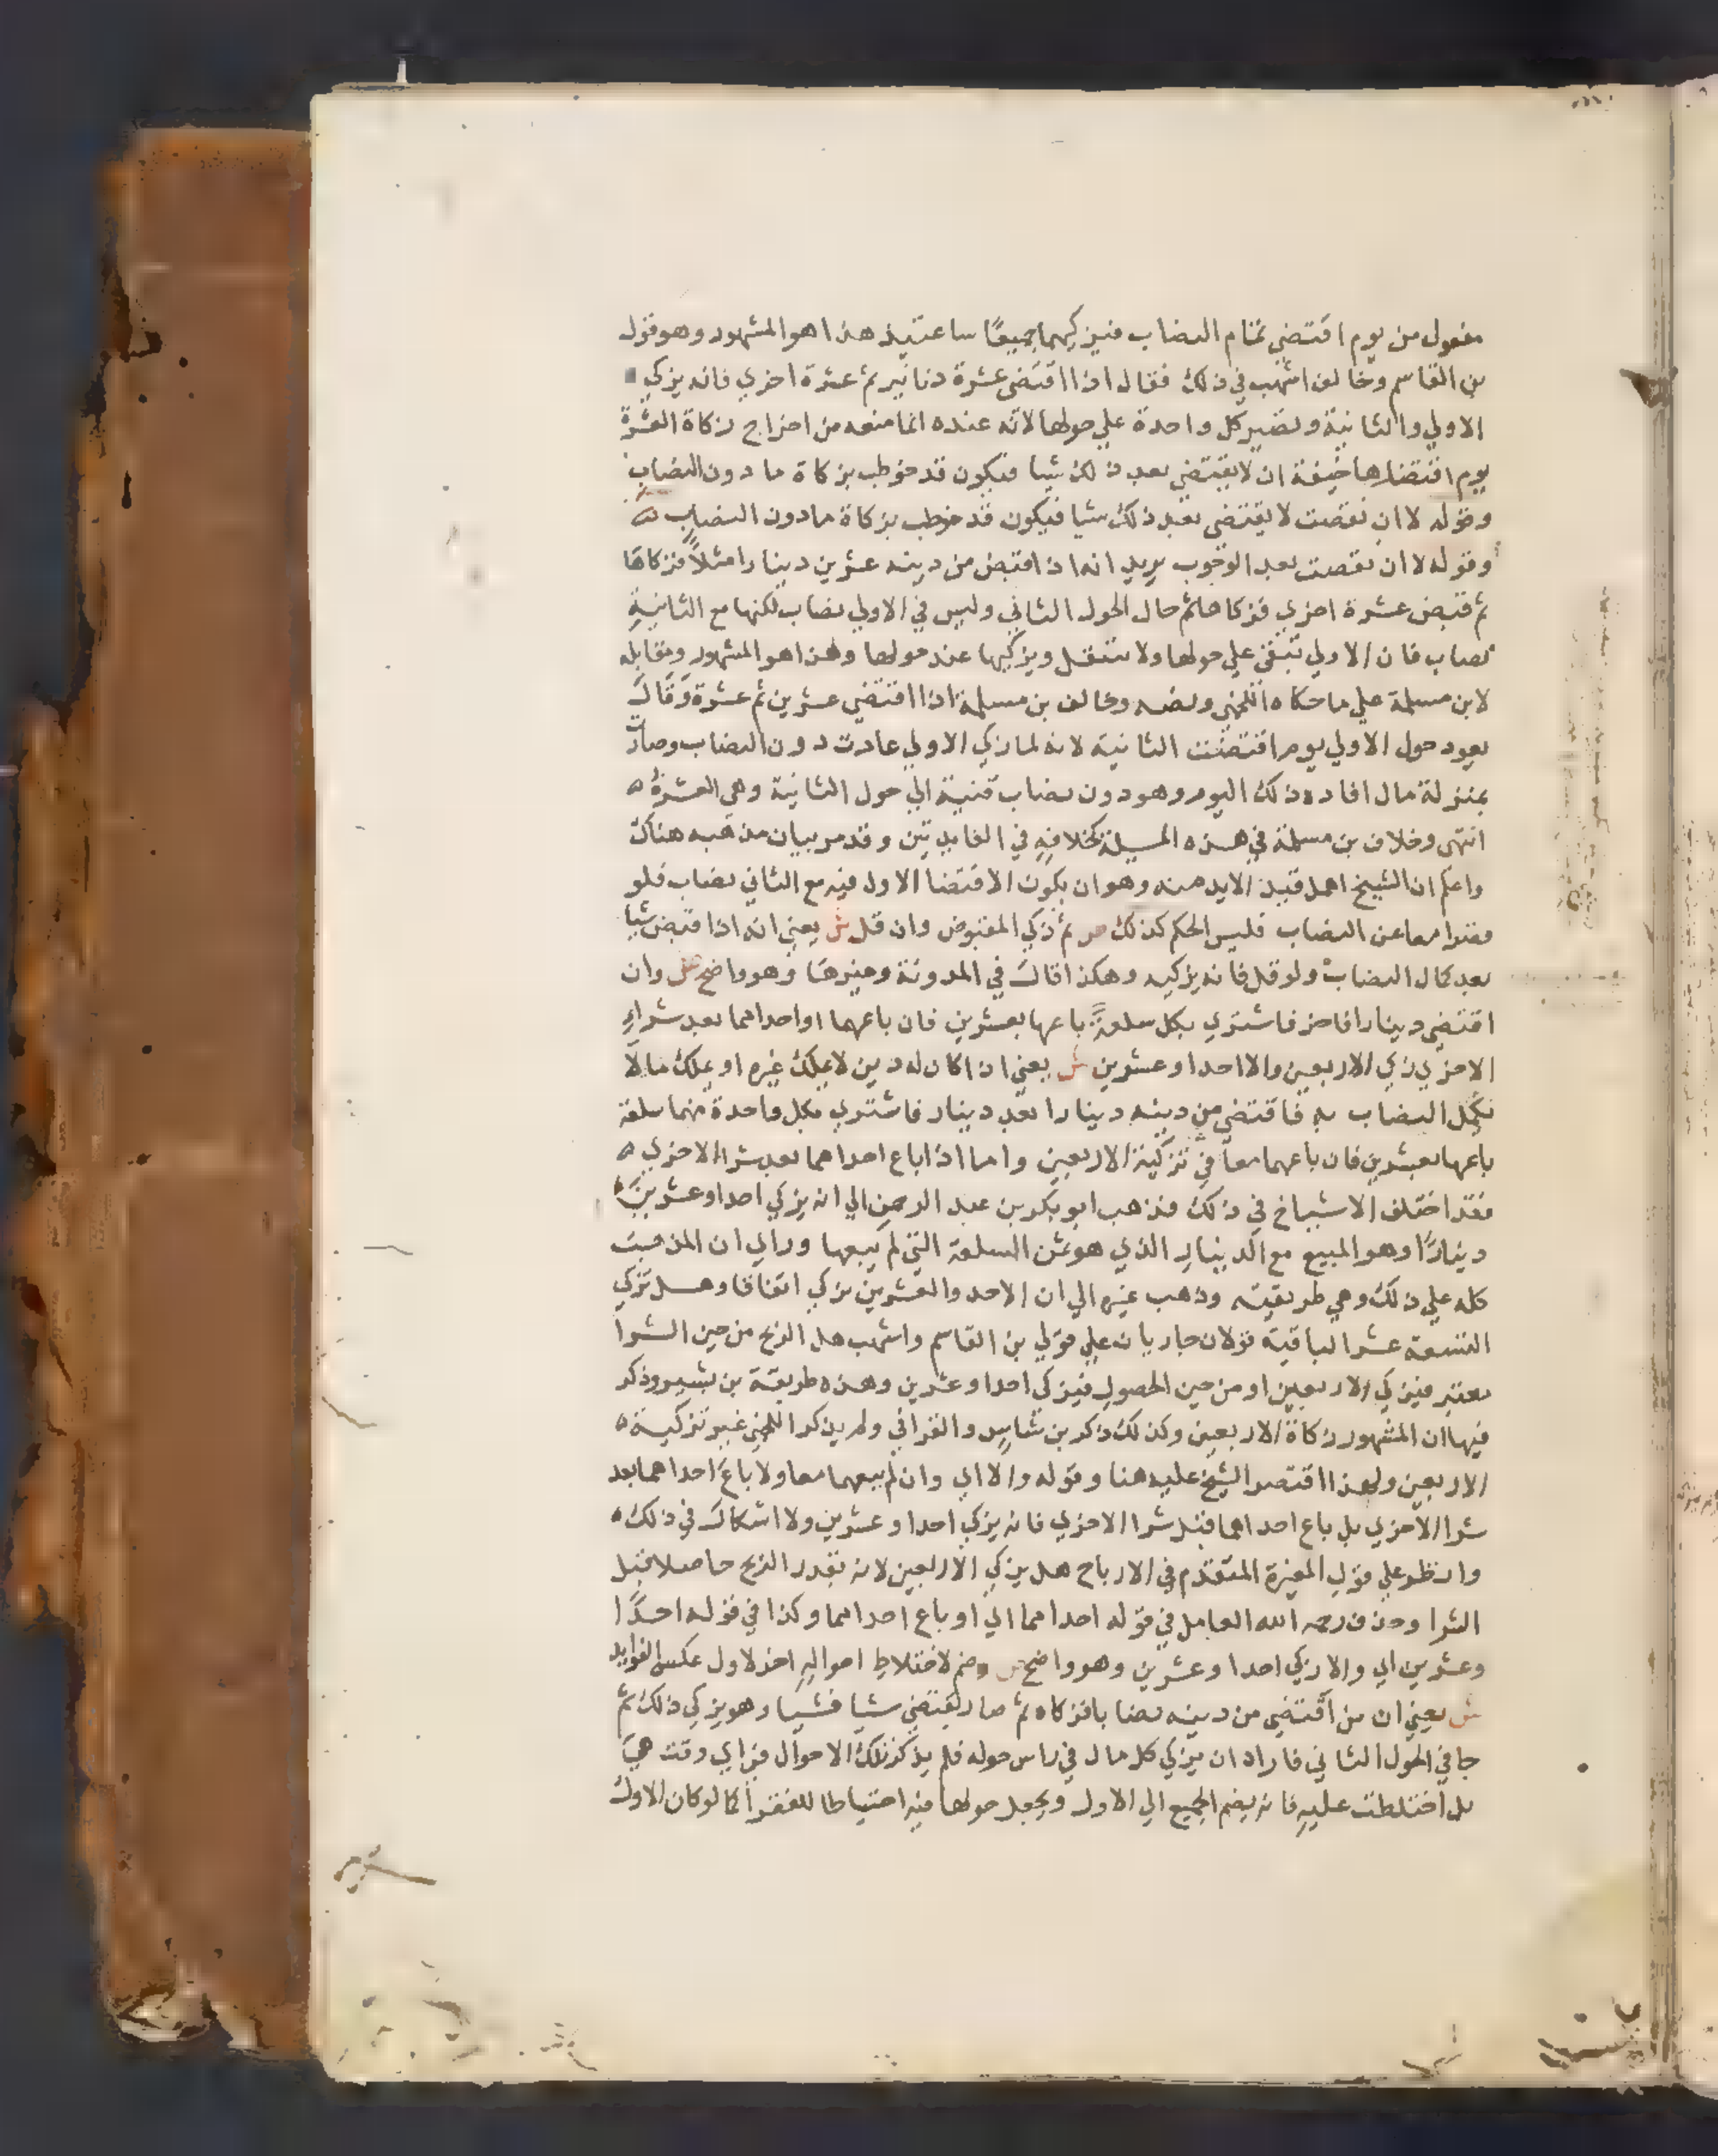 مفعول من يوم اقتضي تمام النصاب فيزكيهما جميعًا ساعتيذ هذا هو المشهور وهو قول
بن القاسم وخالف اشهب في ذلك فقال اذا اقتضي عشرة دنانير ثم عشرة اخري فانه يزكي
الاولي والثانية وتصير كل واحدة علي حولها لانه عنده انما منعه من اخراج زكاة العشرة
يوم اقتضاها خيفة ان لا يقتضي بعد ذلك شيا فيكون قد خوطب بزكاة ما دون النصاب
وقوله لا ان نقصت لا يقتضي بعد ذلك شيا فيكون قد خوطب بزكاة ما دون النصاب
وقوله لا ان نقصت بعد الوجوب يريد انه اذا قبض من دينه عشرين دينارا مثلاً فزكاها
ثم قبض عشرة اخري فزكاها ثم حال الحول الثاني وليس في الاولي نصاب لكنها مع الثانية
نصاب فان الاولي تبقي علي حولها ولا تنتقل ويزكيها عند حولها وهذا هو المشهور ومقابله
لابن مسلمة علي ما حكاه اللخمي ونصه وخالف بن مسلمة اذا اقتضي عشرين ثم عشرة وقال
يعود حول الاولي يوم اقتضيت الثانية لانه لما زكي الاولي عادت دون النصاب وصارت
بمنزلة مال افاده ذلك اليوم وهو دون نصاب قنية الي حول الثانية وهي العشرة ه
انتهي وخلاف بن مسلمة في هذه المسيلة كخلافه في الفايدتين وقد مر بيان مذهبه هناك
واعلم ان الشيخ اهمل قيدا لابد منه وهو ان يكون الاقتضا الاول فيه مع الثاني نصاب فلو
قصرا معا عن النصاب فليس الحكم كذلك ص ثم زكي المقبوض وان قل ش يعني انه اذا قبض شيا
بعد كمال النصاب ولو قل فانه يزكيه وهكذا قال في المدونة وغيرها وهو واضح ص وان
اقتضي دينارا فاخر فاشتري بكل سلعة باعها بعشرين فان باعهما او احداهما بعد شراء
الاخري زكي الاربعين والا احدا وعشرين ش يعني اذا كان له دين لا يملك غيره او يملك ما لا
يكمل النصاب به فاقتضي من دينه دينارا بعد دينار فاشتري بكل واحدة منهما سلعة
باعها بعشرين فان باعهما معا في تزكية الاربعين واما اذا باع احداهما بعد شرا الاخري ه
فقد اختلف الاشياخ في ذلك فذهب ابو بكر بن عبد الرحمن الي انه يزكي احدا وعشرين
دينارًا وهو المبيع مع الدينار الذي هو ثمن السلعة التي لم يبعها وراي ان المذهب
كله علي ذلك وهي طريقته وذهب غيره الي ان الاحد والعشرين يزكي اتفاقا وهل تزكي
التسعة عشر الباقية قولان جاريان علي قولي بن القاسم واشهب هل الربح من حين الشرا
يعتبر فيزكي الاربعين او من حين الحصول فيزكي احدا وعشرين وهذه طريقة بن بشير وذكر
فيها ان المشهور زكاة الاربعين وكذلك ذكر بن شاس والقرافي ولم يذكر اللخمي غير تزكية ه
الاربعين ولهذا اقتصر الشيخ عليه هنا وقوله والا اي وان لم يبعهما معا ولا باع احداهما بعد
شرا الاخري بل باع احداهما قبل شرا الاخري فانه يزكي احدا وعشرين ولا اشكال في ذلك ه
وانظر علي قول المغيرة المتقدم في الارباح هل يزكي الاربعين لانه يقدر الربح حاصلا قبل
الشرا وحذف رحمه الله العامل في قوله احداهما اي او باع احداهما وكذا في قوله احدًا
وعشرين اي والا زكي احدا وعشرين وهو واضح ص وضم لاختلاط احواله اخر لاول عكس الفوايد
ش يعني ان من اقتضي من دينه نصابا فزكاه ثم صار يقتضي شيا فشيا وهو يزكي ذلك ثم
جا في الحول الثاني فاراد ان يزكي كل مال في راس حوله فلم يذكر تلك الاحوال في اي وقت هي
بل اختلطت عليه فانه يضم الجميع الي الاول ويجعل حولها منه احتياطا للفقرا كما لو كان الاول